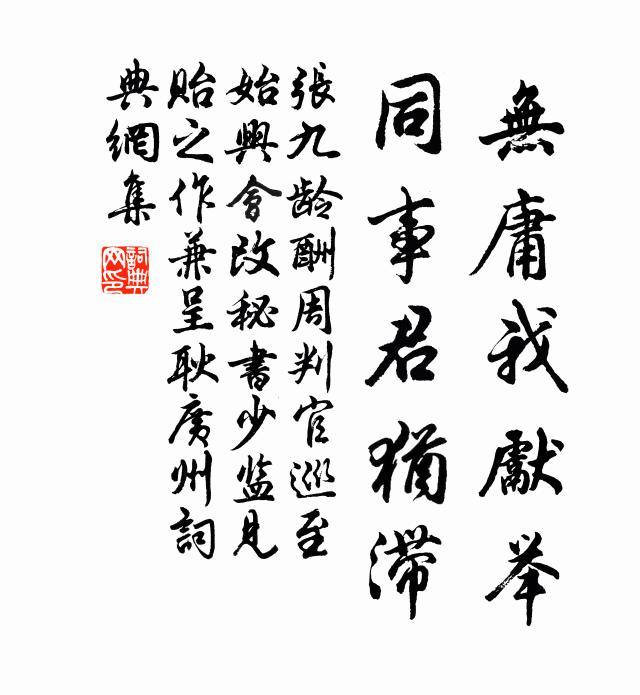 無庸我獻举
同事君猶滞
張九龄酬周判官巡至
始興會改秘書少监見
贻之作兼呈耿廣州詞
典網集
詞典
网印